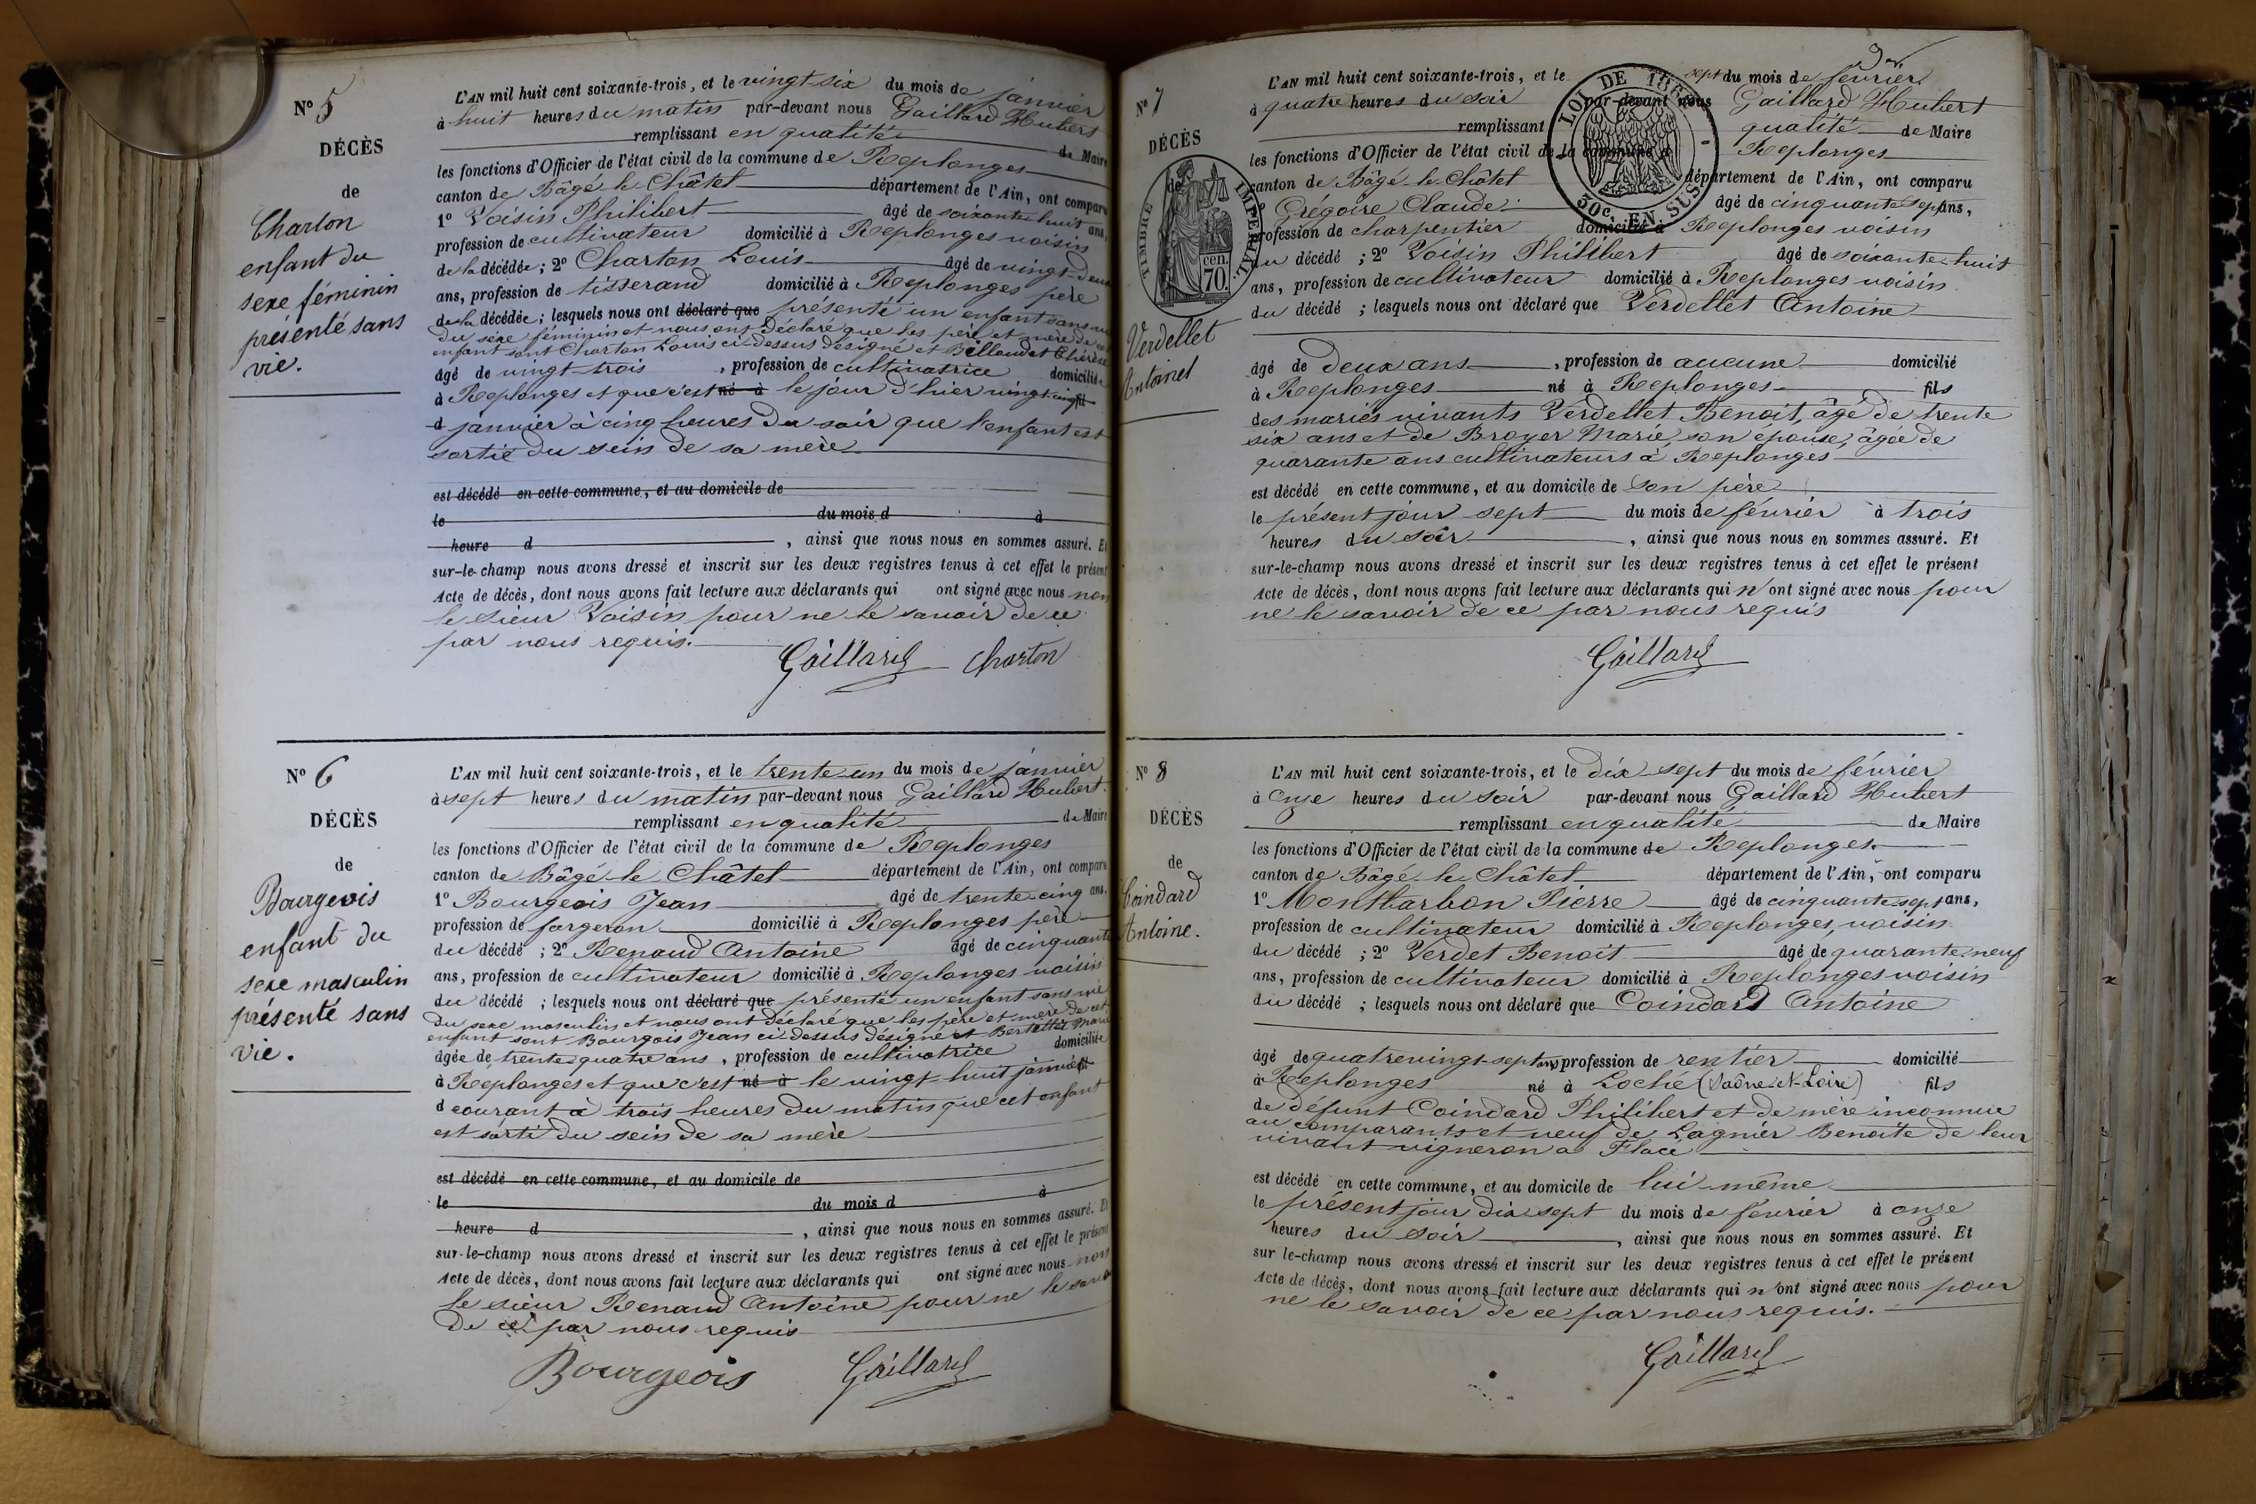 N° 5
DÉCÈS
de
Charton
enfant du
sexe féminin
présenté sans
vie.
L'AN mil huit cent soixante-trois, et le vingt six du mois de janvier
à huit heures du matin par-devant nous Gaillard Hubert
remplissant en qualité de Maire
les fonctions d'Officier de l'état civil de la commune de Replonges
canton de Bâgé-le-Châtel département de l'Ain, ont comparu
1° Voisin Philibert âgé de soixante-huit ans,
profession de cultivateur domicilié à Replonges voisin
de la décédée ; 2° Charton Louis âgé de vingt-deux
ans, profession de tisserand domicilié à Replonges père
de la décédée ; lesquels nous ont déclaré que présenté un enfant sans vie
du sexe féminin et nous ont déclaré que les père et mère de cet
enfant sont Charton Louis ci-dessus désigné et Billoudet Thérèse
âgé de vingt-trois , profession de cultivatrice domiciliée
à Replonges et que c'est né à le jour d'hier vingt-cinq
d janvier à cinq heures du soir que l'enfant est
sortie du sein de sa mère
est décédé en cette commune, et au domicile de
le du mois d à
heure d , ainsi que nous nous en sommes assuré. Et
sur-le-champ nous avons dressé et inscrit sur les deux registres tenus à cet effet le présent
Acte de décès, dont nous avons fait lecture aux déclarants qui ont signé avec nous non
le sieur Voisin pour ne le savoir de ce
par nous requis.
Gaillard Charton
N° 6
DÉCÈS
de
Bourgeois
enfant du
sexe masculin
présenté sans
vie.
L'AN mil huit cent soixante-trois, et le trente-un du mois de janvier
à sept heures du matin par-devant nous Gaillard Hubert
remplissant en qualité de Maire
les fonctions d'Officier de l'état civil de la commune de Replonges
canton de Bâgé-le-Châtel département de l'Ain, ont comparu
1° Bourgeois Jean âgé de trente-cinq ans,
profession de forgeron domicilié à Replonges père
du décédé ; 2° Renaud Antoine âgé de cinquante
ans, profession de cultivateur domicilié à Replonges voisin
du décédé ; lesquels nous ont déclaré que présenté un enfant sans vie
du sexe masculin et nous ont déclaré que les père et mère de cet
enfant sont Bourgeois Jean ci-dessus désigné et Bertillet Marie
âgée de trente-quatre ans , profession de cultivatrice domiciliée
à Replonges et que c'est né à le vingt-huit janvier
d courant à trois heures du matin que cet enfant
est sorti du sein de sa mère
est décédé en cette commune, et au domicile de
le du mois d à
heure d , ainsi que nous nous en sommes assuré. Et
sur-le-champ nous avons dressé et inscrit sur les deux registres tenus à cet effet le présent
Acte de décès, dont nous avons fait lecture aux déclarants qui ont signé avec nous non
le sieur Renaud Antoine pour ne le savoir
de ce par nous requis
Bourgeois Gaillard
N° 7
DÉCÈS
de
Verdellet
Antoine
TIMBRE IMPÉRIAL
cen.
70.
LOI DE 1862
50c. EN SUS
L'AN mil huit cent soixante-trois, et le sept du mois de février
à quatre heures du soir par-devant nous Gaillard Hubert
remplissant qualité de Maire
les fonctions d'Officier de l'état civil de la commune d Replonges
canton de Bâgé-le-Châtel département de l'Ain, ont comparu
Grégoire Claude âgé de cinquante-sept ans,
profession de charpentier domicilié à Replonges voisin
du décédé ; 2° Voisin Philibert âgé de soixante-huit
ans, profession de cultivateur domicilié à Replonges voisin
du décédé ; lesquels nous ont déclaré que Verdellet Antoine
âgé de deux ans , profession de aucune domicilié
à Replonges né à Replonges fils
des mariés vivants Verdellet Benoit, âgé de trente
six ans et de Broyer Marie, son épouse, âgée de
quarante ans cultivateurs à Replonges
est décédé en cette commune, et au domicile de son père
le présent jour sept du mois de février à trois
heures du soir , ainsi que nous nous en sommes assuré. Et
sur-le-champ nous avons dressé et inscrit sur les deux registres tenus à cet effet le présent
Acte de décès, dont nous avons fait lecture aux déclarants qui n'ont signé avec nous pour
ne le savoir de ce par nous requis
Gaillard
N° 8
DÉCÈS
de
Coindard
Antoine.
L'AN mil huit cent soixante-trois, et le dix-sept du mois de février
à onze heures du soir par-devant nous Gaillard Hubert
remplissant en qualité de Maire
les fonctions d'Officier de l'état civil de la commune de Replonges.
canton de Bâgé-le-Châtel département de l'Ain, ont comparu
1° Montbarbon Pierre âgé de cinquante-sept ans,
profession de cultivateur domicilié à Replonges, voisin
du décédé ; 2° Verdet Benoit âgé de quarante-neuf
ans, profession de cultivateur domicilié à Replonges voisin
du décédé ; lesquels nous ont déclaré que Coindard Antoine
âgé de quatrevingt-sept ans profession de rentier domicilié
à Replonges né à Loché (Saône-et-Loire) fils
de défunt Coindard Philibert et de mère inconnue
au comparants et veuf de Lagnier Benoite de leur
vivant vigneron a Flacé
est décédé en cette commune, et au domicile de lui-même
le présent jour dix sept du mois de février à onze
heures du soir , ainsi que nous nous en sommes assuré. Et
sur le-champ nous avons dressé et inscrit sur les deux registres tenus à cet effet le présent
Acte de décès, dont nous avons fait lecture aux déclarants qui n'ont signé avec nous pour
ne le savoir de ce par nous requis.
Gaillard